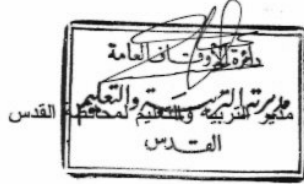 دائرة الأوقاف العامة
مديرية التربية والتعليم
مدير التربية والتعليم لمحافظة القدس
القدس